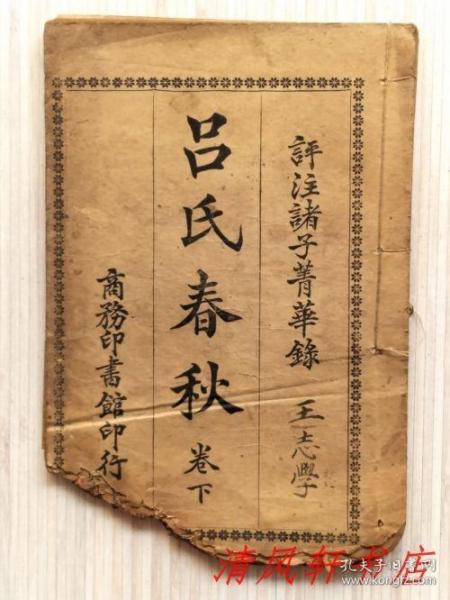 評注諸子菁華錄
王志學
呂氏春秋 卷下
商務印書館印行
清风轩书店
孔夫子旧书网
www.kongfz.com